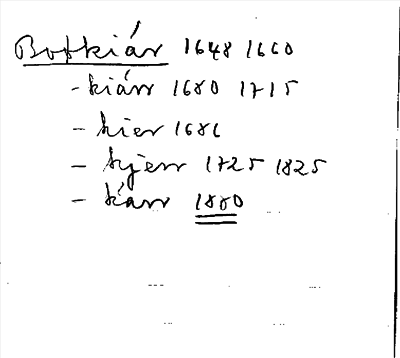 Botkiärr 1648 1660
-kiärr 1680 1715
- kier 1686
- kjerr 1725 1825
- kärr 1880